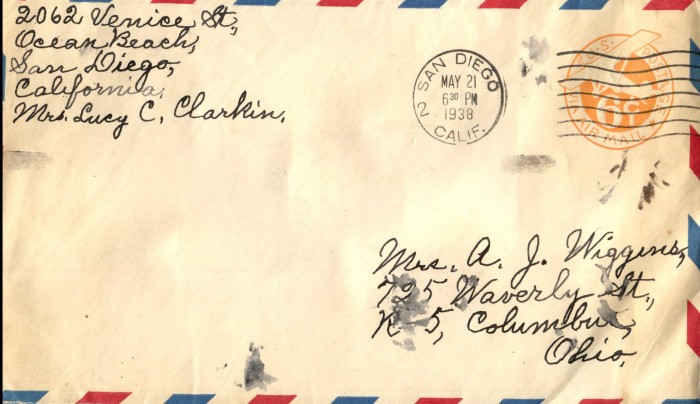 2062 Venice St.,
Ocean Beach,
San Diego,
California.
Mrs. Lucy C. Clarkin.
SAN DIEGO
MAY 21
6 30 PM
1938
2
CALIF.
U.S. POSTAGE
6¢
VIA AIR MAIL
Mrs. A. J. Wiggins,
725 Waverly St.,
R 5, Columbus,
Ohio.